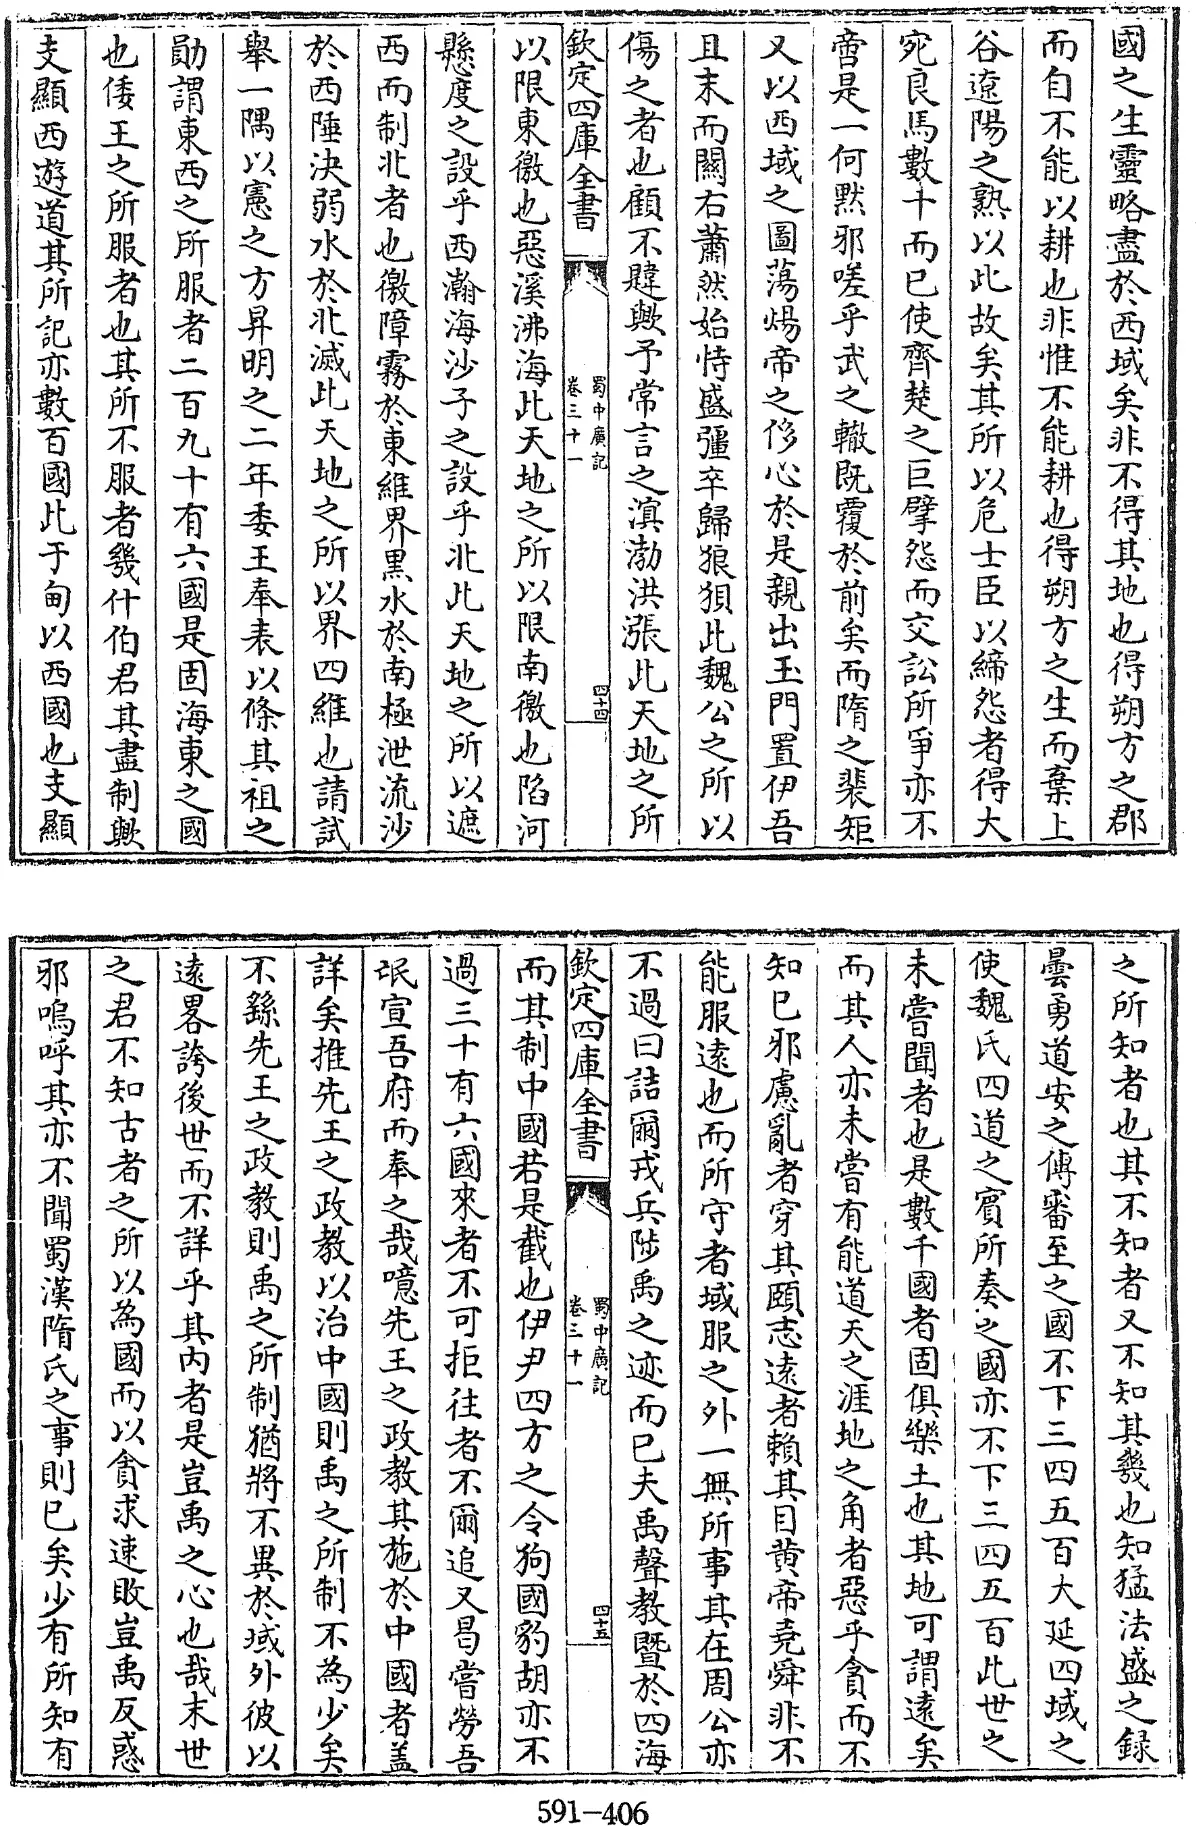 國之生靈略盡於西域矣非不得其地也得朔方之郡
而自不能以耕也非惟不能耕也得朔方之生而棄上
谷遼陽之熟以此故矣其所以危士臣以締怨者得大
宛良馬數十而已使齊楚之巨擘怨而交訟所爭亦不
啻是一何黙邪嗟乎武之轍既覆於前矣而隋之裴矩
又以西域之圖蕩煬帝之侈心於是親出玉門置伊吾
且末而關右蕭然始恃盛彊卒歸狼狽此魏公之所以
傷之者也顧不韙歟予常言之溟渤洪漲此天地之所
欽定四庫全書
蜀中廣記
卷三十一
四十四
以限東徼也惡溪沸海此天地之所以限南徼也陷河
懸度之設乎西瀚海沙子之設乎北此天地之所以遮
西而制北者也徼障霧於東維界黒水於南極泄流沙
於西陲決弱水於北滅此天地之所以界四維也請試
舉一隅以憲之方昇明之二年委王奉表以條其祖之
勛謂東西之所服者二百九十有六國是固海東之國
也倭王之所服者也其所不服者幾什伯君其盡制歟
支顯西遊道其所記亦數百國此于甸以西國也支顯
之所知者也其不知者又不知其幾也知猛法盛之録
曇勇道安之傳番至之國不下三四五百大延四域之
使魏氏四道之賔所奏之國亦不下三四五百此世之
未嘗聞者也是數千國者固俱樂土也其地可謂逺矣
而其人亦未嘗有能道天之涯地之角者惡乎貪而不
知已邪慮亂者穿其頤志逺者賴其目黄帝堯舜非不
能服逺也而所守者域服之外一無所事其在周公亦
不過曰詰爾戎兵陟禹之迹而已夫禹聲教暨於四海
欽定四庫全書
蜀中廣記
卷三十一
四十五
而其制中國若是截也伊尹四方之令狗國豹胡亦不
過三十有六國來者不可拒往者不爾追又曷嘗勞吾
氓宣吾府而奉之哉噫先王之政教其施於中國者葢
詳矣推先王之政教以治中國則禹之所制不為少矣
不繇先王之政教則禹之所制猶將不異於域外彼以
逺畧誇後世而不詳乎其内者是豈禹之心也哉末世
之君不知古者之所以為國而以貪求速敗豈禹反惑
邪嗚呼其亦不聞蜀漢隋氏之事則已矣少有所知有
591-406